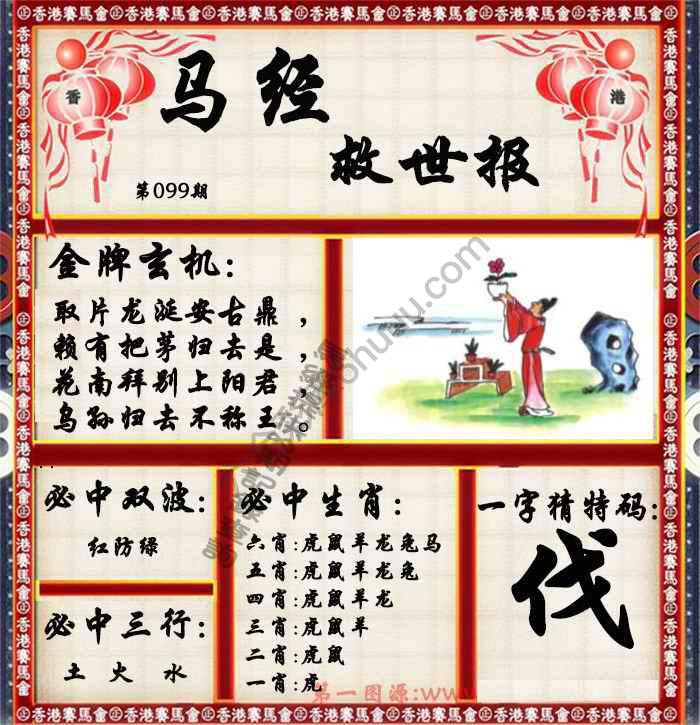 香港賽馬會
香 港
马经
救世报
第099期
金牌玄机：
取片龙涎安古鼎，
赖有把茅归去是，
花南拜别上阳君，
乌孙归去不称王。
必中双波：
红防绿
必中三行：
土 火 水
必中生肖：
六肖:虎鼠羊龙兔马
五肖:虎鼠羊龙兔
四肖:虎鼠羊龙
三肖:虎鼠羊
二肖:虎鼠
一肖:虎
一字猜特码：
伐
第一图源:www